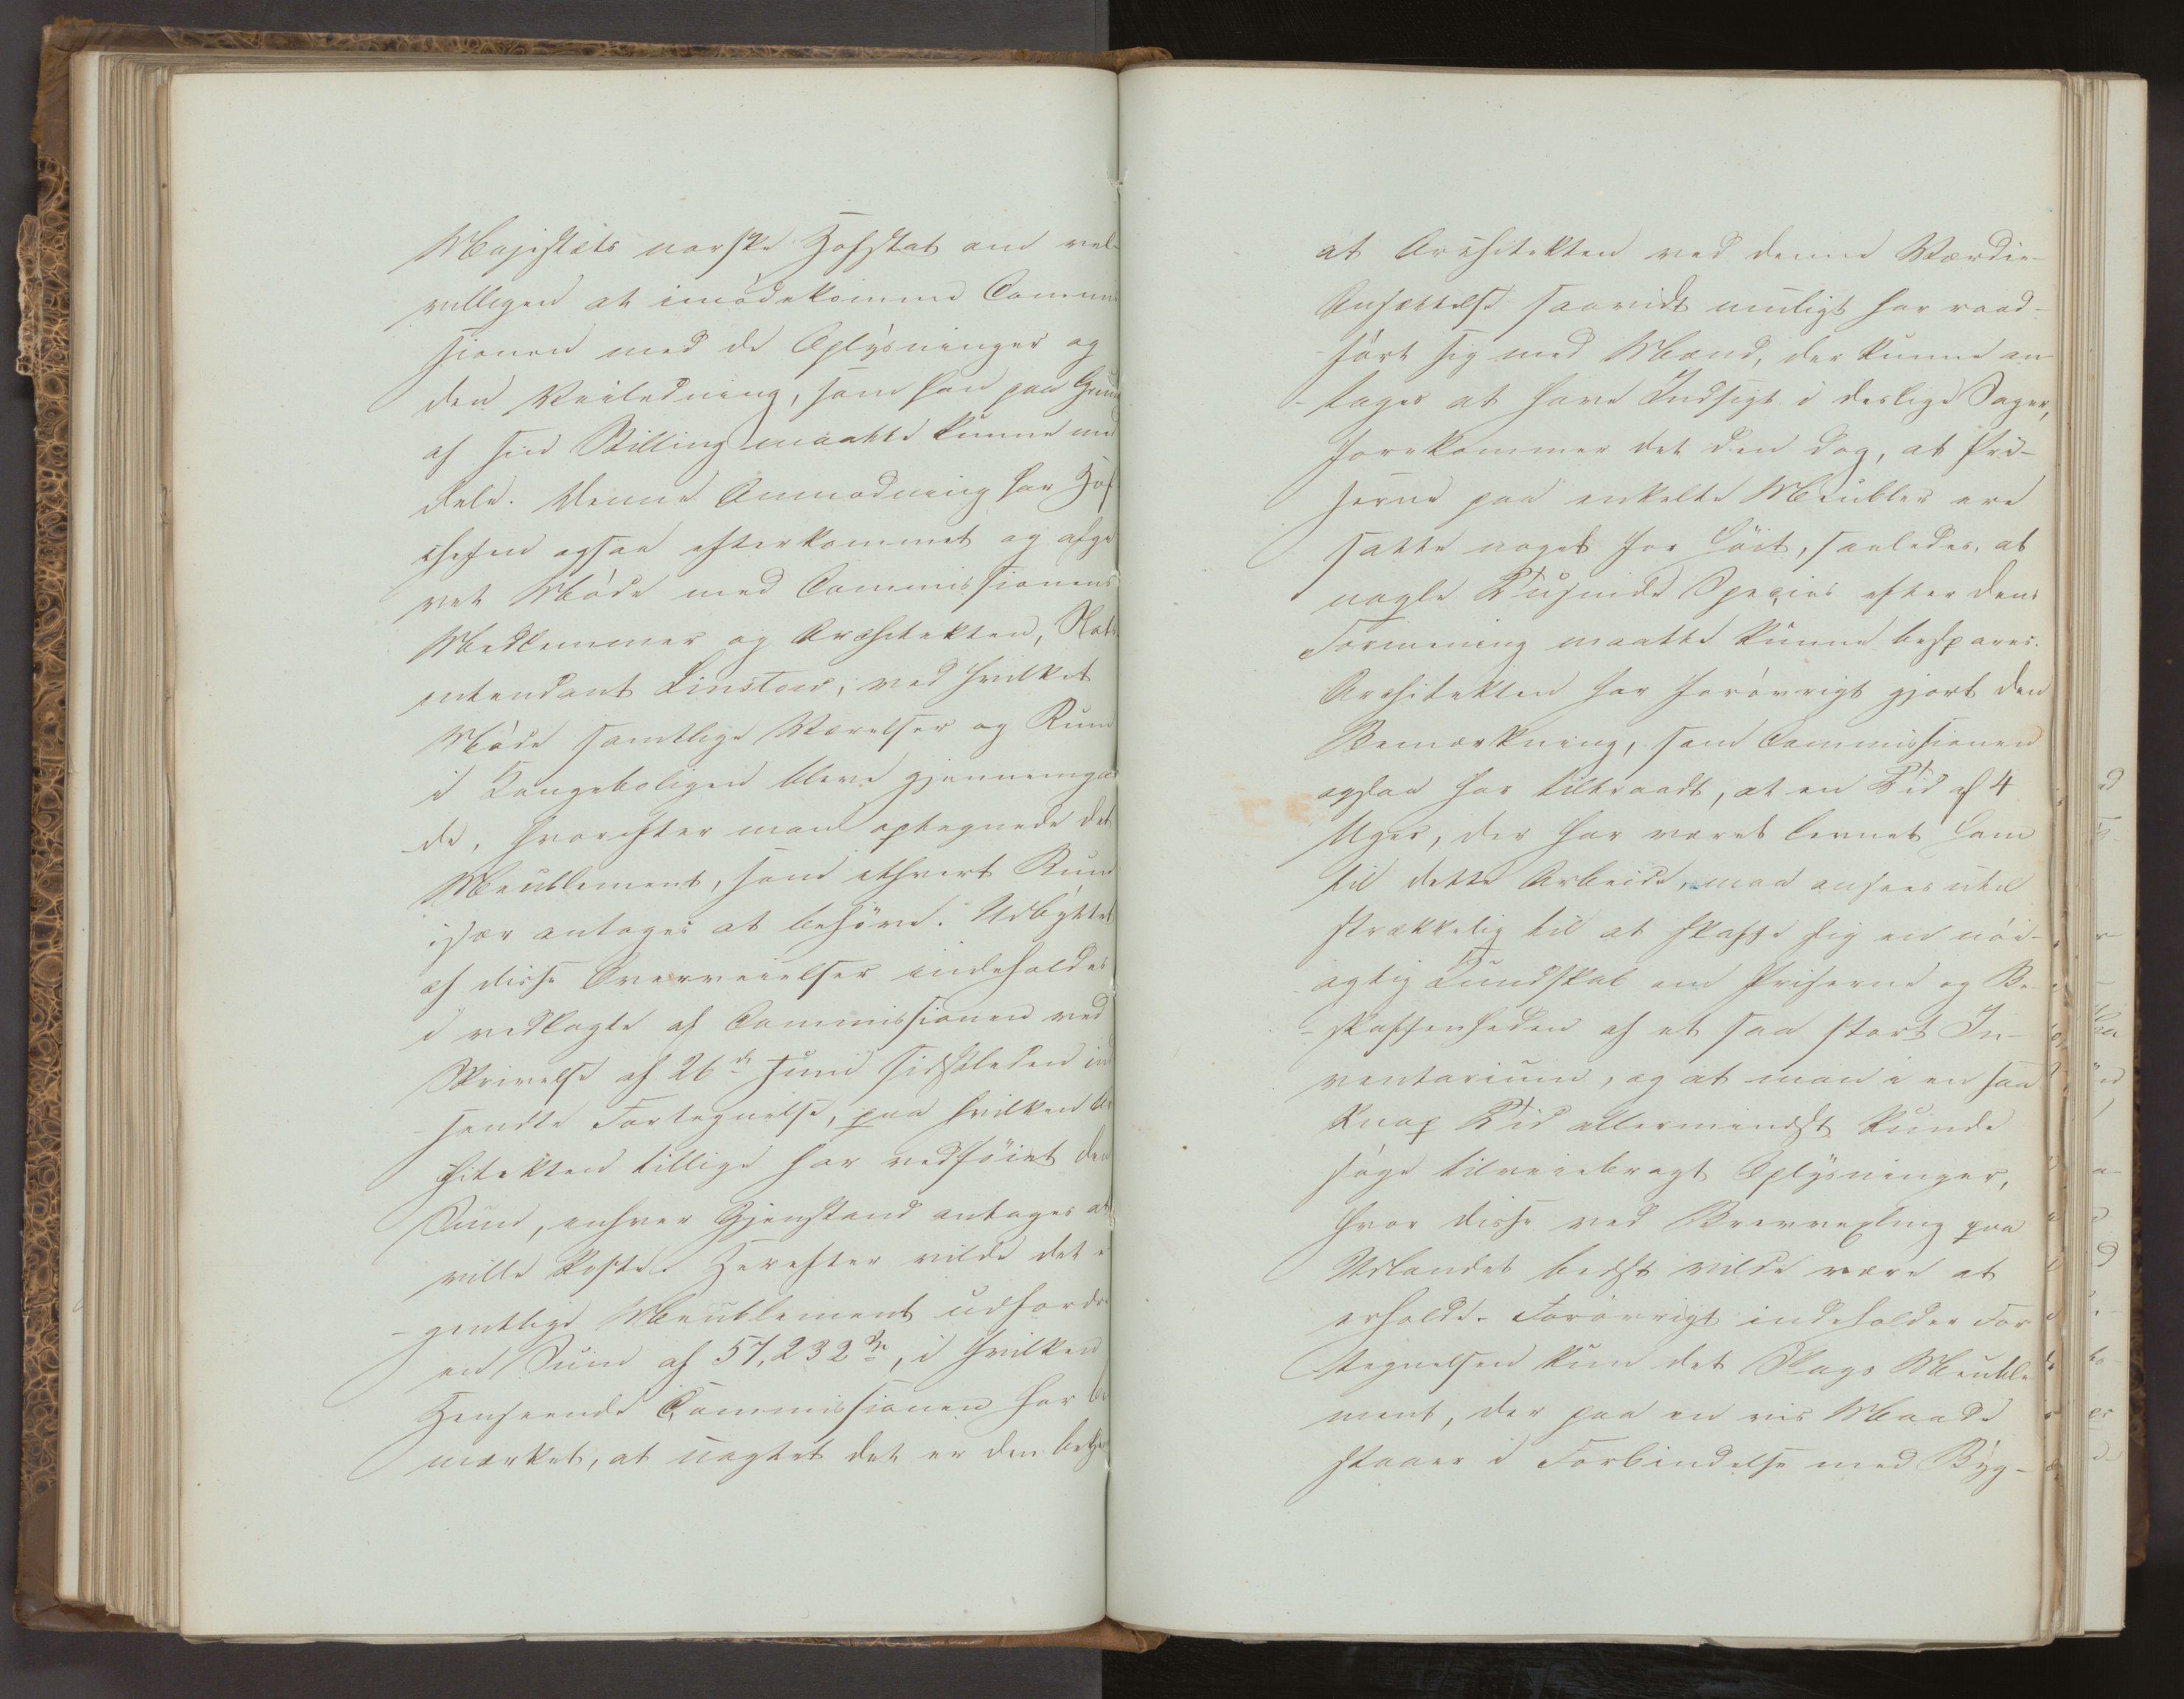 Majestæts norske Hofstat om vel-
villigen at imödekomme Commis
sionen med de Oplysninger og
den Veiledning, som han paa Grund
af sin Stilling maatte kunne med
dele. Denne Anmodning har Hof
chefen ogsaa efterkommet og afgi
vet Möde med Commissionens
Medlemmer og Architekten, Slots
intendant Linstow, ved hvilket
Möde samtlige Værelser og Rum
i Kongeboligen bleve gjennemgaae
-de, hvorefter man optegnede det
Meublement, som ethvert Rum
især antages at behöve. Udbyttet
af disse Overveielser indeholdes
i vedlagte af Commissionen ved
Skrivelse af 26de Juni sidstleden ind
-sendte Fortegnelse, paa hvilken Ar
chitekten tillige har vedföiet den
Sum, enhver Gjenstand antages at
ville koste. Herefter vilde det e
-gentlige Meublement udfordre
en Sum af 57,232 Spd, i hvilken
Henseende Commissionen har be
mærket, at uagtet det er den bekjendt
at Architekten ved denne Værdie-
Ansættelse saavidt muligt har raad-
-fört sig med Mænd, der kunne an-
-tages at have Indsigt i deslige Sager,
forekommer det den dog, at Pri-
serne paa enkelte Meubler ere
satte noget for höit, saaledes, at
nogle Tusinde Species efter dens
Formening maatte kunne bespares.
Architekten har foröwrigt gjort den
Bemærkning, som Commissionen
ogsaa har tiltraadt, at en Tid af 4
Uger, der har været levnet ham
til dette Arbeide, maa ansees util
strækkelig til at skaffe sig en nöi-
agtig Kundskab om Priserne og Be-
-skaffenheden af et saa stort In-
ventarium, og at man i en saa
knap Tid allermindst kunde
söge tilveiebragt Oplysninger,
hvor disse ved Brevvexling paa
Udlandet bedst vilde være at
erholde. Foröwrigt indeholder For
tegnelsen kun det Slags Meuble
ment, der paa en vis Maade
staaer i Forbindelse med Byg-